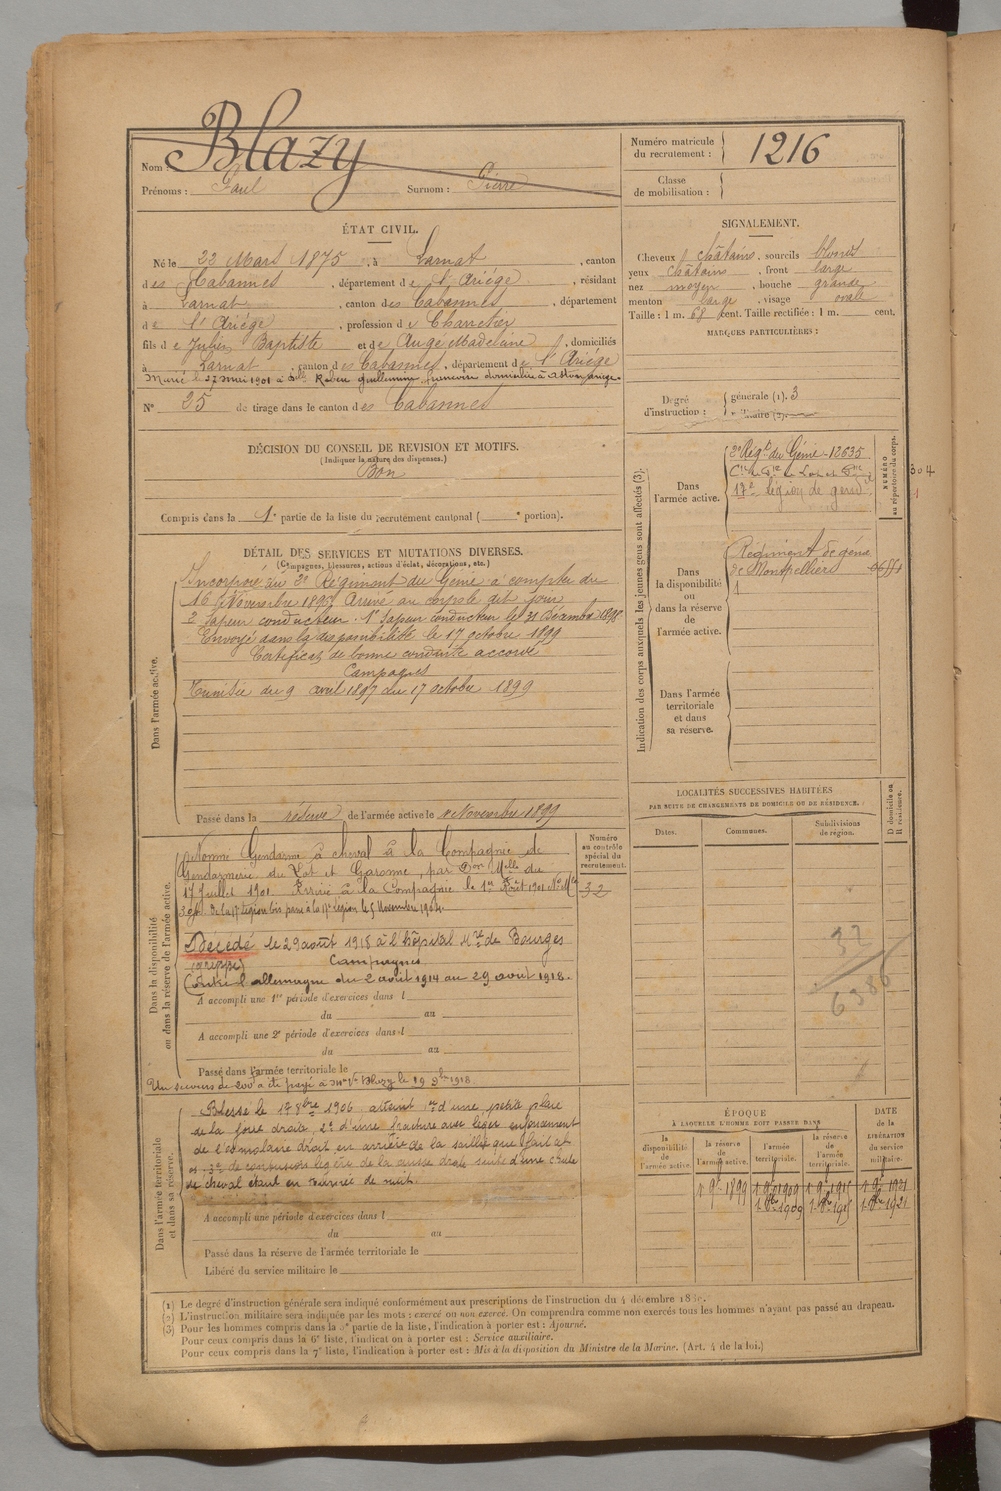 Nom : Blazy
Prénoms : Paul Surnom : Pierre
Numéro matricule
du recrutement : 1216
Classe
de mobilisation :
ÉTAT CIVIL.
Né le 22 Mars 1875, à Larnat, canton
des Cabannes, département de l'Ariége, résidant
à Larnat, canton des Cabannes, département
de l'Ariége, profession de Charretier
fils de Julien Baptiste et de Auge Madelaine, domiciliés
à Larnat, canton des Cabannes, département de l'Ariége
Marié le 27 mai 1901 à Guillemine françoise domiciliée à Aston ariege.
N° 25 de tirage dans le canton des Cabannes
SIGNALEMENT.
Cheveux châtains, sourcils blonds
yeux châtains, front large
nez moyen, bouche grande
menton large, visage ovale
Taille : 1 m. 68 cent. Taille rectifiée : 1 m. cent.
MARQUES PARTICULIÈRES :
Degré
d'instruction :
générale (1). 3
militaire (2).
DÉCISION DU CONSEIL DE REVISION ET MOTIFS.
(Indiquer la nature des dispenses.)
Bon
Compris dans la 1e partie de la liste du recrutement cantonal ( e portion).
DÉTAIL DES SERVICES ET MUTATIONS DIVERSES.
(Campagnes, blessures, actions d'éclat, décorations, etc.)
Dans l'armée active.
Incorporé au 2e Régiment du Génie à compter du
16 Novembre 1896. Arrivé au corps le dit jour
2e Sapeur conducteur. 1er Sapeur conducteur le 31 Décembre 1898.
Envoyé dans la disponibilité le 17 octobre 1899
Certificat de bonne conduite accordé
Campagnes
Tunisie du 9 avril 1897 au 17 octobre 1899
Passé dans la réserve de l'armée active le 1 Novembre 1899
Indication des corps auxquels les jeunes gens sont affectés (3).
NUMÉRO
au répertoire du corps.
Dans
l'armée active.
2e Régt du Génie - 12635
17e légion de gendie
304
Dans
la disponibilité
ou
dans la réserve
de
l'armée active.
Régiment de génie
de Montpellier
Dans l'armée
territoriale
et dans
sa réserve.
LOCALITÉS SUCCESSIVES HABITÉES
PAR SUITE DE CHANGEMENTS DE DOMICILE OU DE RÉSIDENCE.
Dates.
Communes.
Subdivisions
de région.
D domicile ou
R résidence.
32
6386
Dans la disponibilité
ou dans la réserve de l'armée active.
Numéro
au contrôle
spécial du
recrutement.
32
Nommé Gendarme à cheval à la Compagnie de
Gendarmerie du Lot et Garonne, par Don Melle du
17 Juillet 1901. Arrivé à la Compagnie le 1er Août 1901 No Mle
De la 17e légion bis passé à la 17e légion le 5 Novembre 1904.
Décédé le 29 août 1918 à l'hôpital Mre de Bourges
(grippe) Campagnes
Contre l'allemagne du 2 août 1914 au 29 août 1918.
A accompli une 1re période d'exercices dans l
du au
A accompli une 2e période d'exercices dans l
du au
Passé dans l'armée territoriale le
Un secours de 200 a été payé à Mme Ve Blazy le 19 9bre 1918.
Dans l'armée territoriale
et dans sa réserve.
Blessé le 17 8bre 1906 atteint 1° d'une petite plaie
de la joue droite, 2° d'une fracture avec léger enfoncement
de l'omoplate droit en arrière de la saillie que fait cet
os 3° de contusion légère de la cuisse droite suite d'une chute
de cheval étant en tournée de nuit.
A accompli une période d'exercices dans l
du au
Passé dans la réserve de l'armée territoriale le
Libéré du service militaire le
ÉPOQUE
À LAQUELLE L'HOMME DOIT PASSER DANS
la
disponibilité
de
l'armée active.
la réserve
de
l'armée active.
l'armée
territoriale.
la réserve
de
l'armée
territoriale.
DATE
de la
LIBÉRATION
du service
militaire.
1 9bre 1899
1 8bre 1909
1 8bre 1915
1 8bre 1921
(1) Le degré d'instruction générale sera indiqué conformément aux prescriptions de l'instruction du 4 décembre
(2) L'instruction militaire sera indiquée par les mots : exercé ou non exercé. On comprendra comme non exercés tous les hommes n'ayant pas passé au drapeau.
(3) Pour les hommes compris dans la 5e partie de la liste, l'indication à porter est : Ajourné.
Pour ceux compris dans la 6e liste, l'indication à porter est : Service auxiliaire.
Pour ceux compris dans la 7e liste, l'indication à porter est : Mis à la disposition du Ministre de la Marine. (Art. 4 de la loi.)